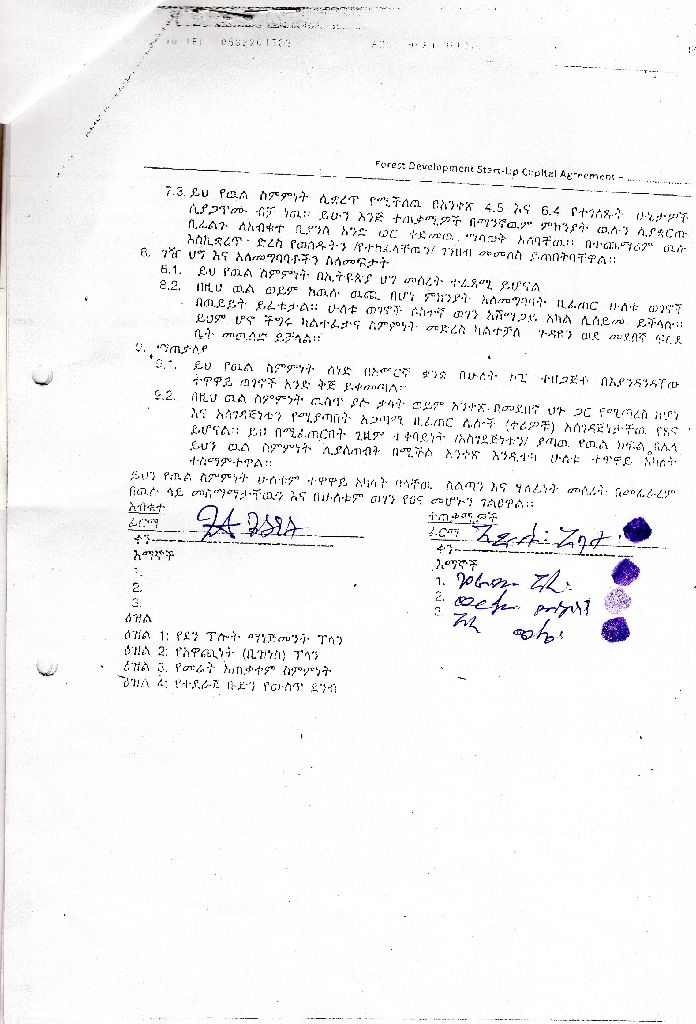 Forest Development Start-Up Capital Agreement –
7.3. ይህ የዉል ስምምነት ሊቋረጥ የሚችለዉ በአንቀጽ 4.5 እና 6.4 የተገለጹት ሁኔታዎች
ሲያጋጥሙ ብቻ ነዉ። ይሁን እንጅ ተጠቃሚዎች በማንኛዉም ምክንያት ዉሉን ሊያቋርጡ
ቢፈልጉ ለአብቁተ ቢያንስ አንድ ወር ቀደመዉ ማሳወቅ አለባቸዉ። በተጨማሪም ዉሉ
እስኪቋረጥ ድረስ የወሰዱትን /የተከፈላቸዉን/ ገንዘብ መመለስ ይጠበቅባቸዋል።
8. ገዥ ህግ እና አለመግባባቶችን ስለመፍታት
8.1. ይህ የዉል ስምምነት በኢትዮጵያ ህግ መሰረት ተፈፃሚ ይሆናል
8.2. በዚህ ዉል ወይም ከዉሉ ዉጪ በሆነ ምክንያት አለመግባባት ቢፈጠር ሁለቱ ወገኖች
በዉይይት ይፈቱታል። ሁለቱ ወገኖች ሶስተኛ ወገን አሸማጋይ አካል ሊሰይሙ ይችላሉ።
ይህም ሆኖ ችግሩ ካልተፈታና ስምምነት መድረስ ካልተቻለ ጉዳዩን ወደ መደበኛ ፍርድ
ቤት መዉሰድ ይቻላል።
9. ማጠቃለያ
9.1. ይህ የዉል ስምምነት ሰነድ በአማርኛ ቋንቋ በሁለት ኮፒ ተዘጋጅቶ በእያንዳንዳቸው
ተዋዋይ ወገኖች እንድ ቅጅ ይቀመጣል።
9.2. በዚህ ዉል ስምምነት ዉስጥ ያሉ ቃላት ወይም አንቀጽ በመደበኛ ህጉ ጋር የሚጣረስ ከሆነ
እና አሳገዳጅነቱን የሚያጣበት አጋጣሚ ቢፈጠር ሌሎች (ቀሪዎች) አስገዳጅነታቸዉ የፀና
ይሆናል። ይህ በሚፈጠርበት ጊዜም ተቀባይነት /አስገዳጅነቱን/ ያጣዉ የዉል ክፍል ሌላ
ይህን ዉል ስምምነት ሊያልጠብት በሚችል አንቀጽ እንዲተካ ሁለቱ ተዋዋይ አካላት
ተስማምተዋል።
ይህን የዉል ስምምነት ሁለቱም ተዋዋይ አካላት ባላቸዉ ስልጣን እና ሃላፊነት መሰረት በመፈራረም
በዉሉ ላይ መስማማታቸዉን እና በሁለቱም ወገን የፀና መሆኑን ገልፀዋል።
አብቁተ
ተጠቃሚዎች
ፊርማ
ፊርማ
ቀን
ቀን
እማኞች
እማኞች
1.
1.
2.
2.
3.
3.
ዕዝል
ዕዝል 1: የደን ፕሎት ማኔጅመንት ፕላን
ዕዝል 2: የአዋጪነት (ቢዝነስ) ፕላን
ዕዝል 3: የመሬት አጠቃቀም ስምምነት
ዕዝል 4: የተደራጀ ቡድን የውስጥ ደንብ